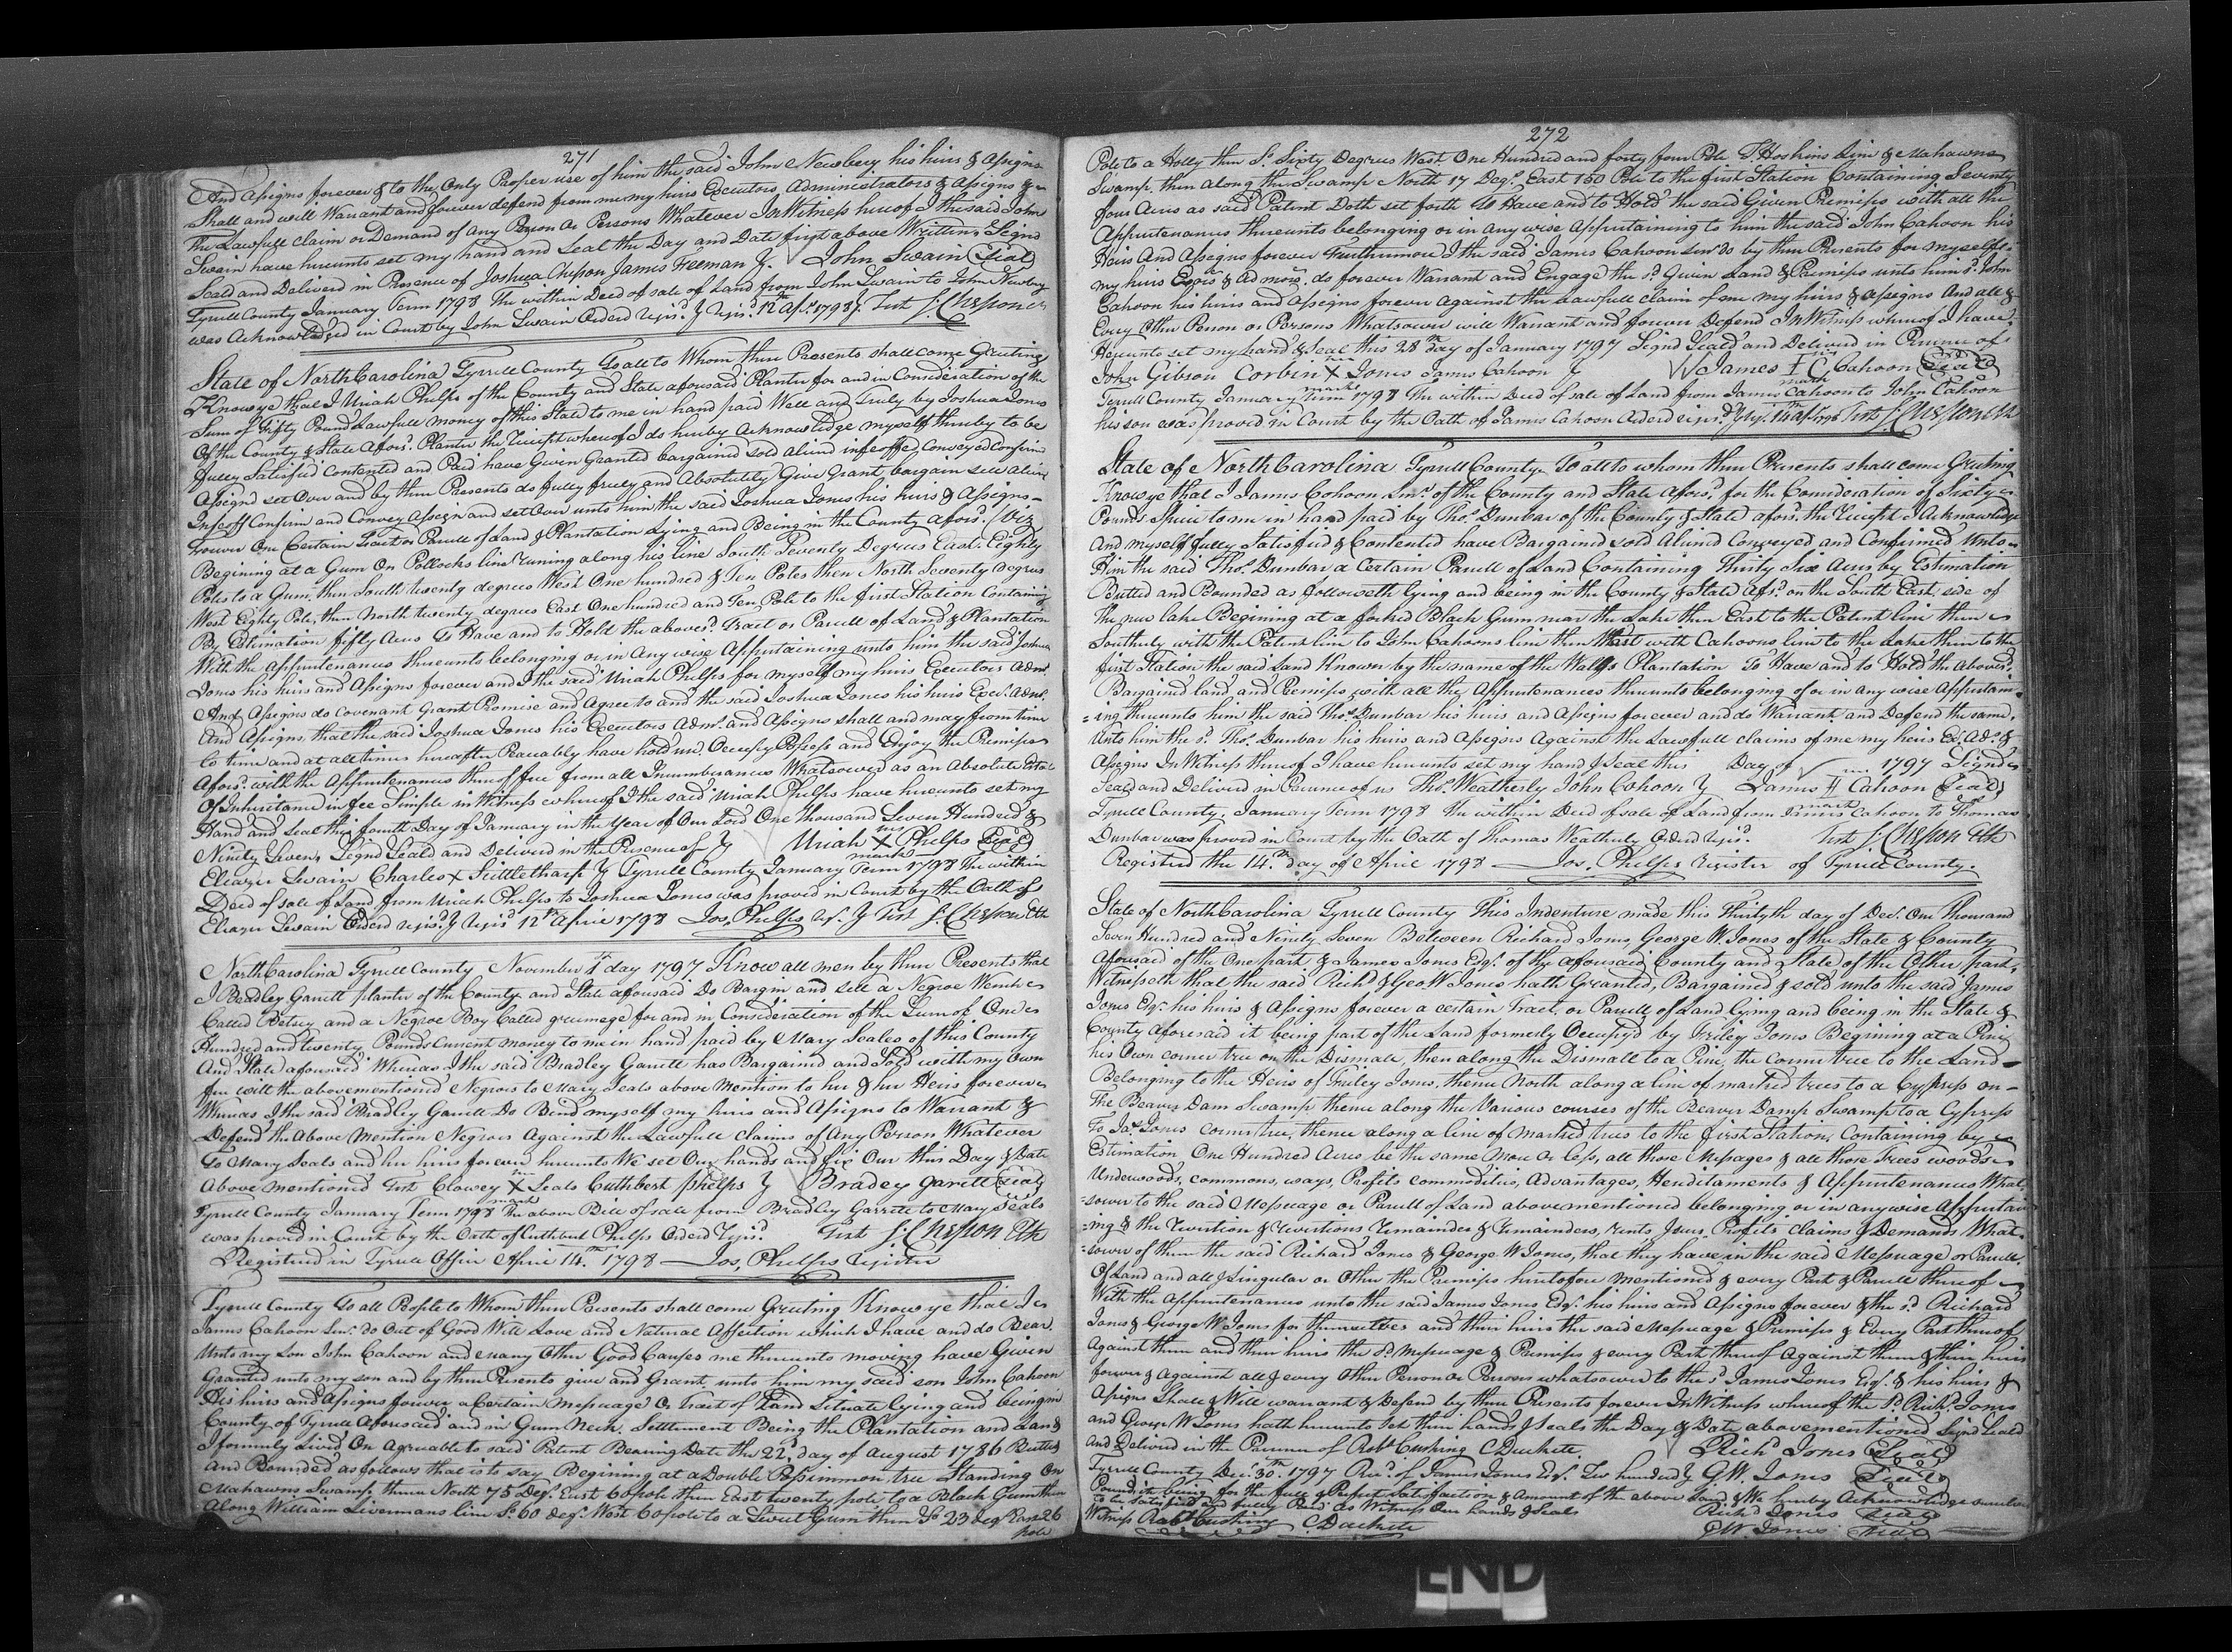 271
And Assigns forever & to the Only Proper use of him the said John Newbery his heirs & Assigns
Shall and will Warrant and forever defend from me my heirs Executors Administrators & Assigns &
the Lawfull claim or Demand of any Person Or Persons Whatever In Witness hereof I the said John
Swain have hereunto set my hand and Seal the Day and Date first above Written Signd
Seald and Deliverd in Presence of Joshua Chesson James Freeman J. John Swain Seal
Tyrrell County January Term 1798 The within Deed of sale of Land from John Swain to John Newbery
was Acknowledged in Court by John Swain Orderd Regis.d & Regis.d 12th Apl. 1798 Test J: Chesson
State of North Carolina Tyrrell County To all to Whom these Presents shall come Greeting
Know ye that I Uriah Phelps of the County and State aforesaid Planter for and in Consideration of the
Sum of fifty Pound Lawfull money of this State to me in hand paid Well and truly by Joshua Jones
Of the County & State Afors.d Planter the Receipt whereof I do hereby Acknowledge myself thereby to be
fully Satisfied Contented and Paid have Given Granted bargained sold aliend infeoffed Conveyed Confirmd
Assignd set Over and by these Presents do fully freely and Absolutely Give Grant bargain sell aliene
Infeoff Confirm and Convey Assign and set Over unto him the said Joshua Jones his heirs & Assigns
forever One Certain tract or Parcell of Land & Plantation Lying and Being in the County afors.d Viz
Begining at a Gum On Pollocks line runing along his line South Seventy Degrees East Eighty
Poles to a Gum, then South twenty degrees West One hundred & Ten Poles then North Seventy Degrees
West Eighty Pole, then North twenty degrees East One hundred and Ten Pole to the first Station Containing
By Estimation fifty Acres To Have and to Hold the above s.d Tract or Parcell of Land & Plantation
With the Appurtenances thereunto belonging or in Any wise Appertaining unto him the said Joshua
Jones his heirs and Assigns forever and I the said Uriah Phelps for myself my heirs Executors Adm.rs
And Assigns do Covenant Grant Promise and Agree to and the said Joshua Jones his heirs Exec.rs Adm.rs
And Assigns that the said Joshua Jones his Executors Adm.rs and Assigns shall and may from time
to time and at all times hereafter Peaceably have hold use Occupy Possess and Enjoy the Premises
Afors.d with the Appurtenances thereof free from all Incumberances Whatsoever as an Absolute Estate
Of Inheritance in fee Simple in Witness whereof I the said Uriah Phelps have hereunto set my
Hand and Seal this fourth Day of January in the Year of Our Lord One Thousand Seven Hundred &
Ninety Seven Signd Seald and Deliverd in the Presence of Uriah X Phelps Seal
mark
Eleazer Swain Charles X Tuttletharp Tyrrell County January Term 1798 The within
Deed of sale of Land from Uriah Phelps to Joshua Jones was proved in Court by the Oath of
Eleazer Swain Orderd regis.d & Regis.d 12th April 1798 Jos. Phelps Test J: Chesson Clk
North Carolina Tyrrell County November 1st day 1797 Know all men by these Presents that
I Bradley Garrett planter of the County and State aforesaid Do Bargin and sell a Negroe Wench
Called Betsey and a Negroe Boy Called greumege for and in Consideration of the Sum of One
Hundred and twenty Pounds Current money to me in hand paid by Mary Seales of this County
And State aforesaid Whereas I the said Bradley Garrett has Bargained and Sold with my Own
free will the abovementioned Negroes to Mary Seals above Mention to her & her Heirs forever
Whereas I the said Bradley Garrett Do Bind myself my heirs and Assigns to Warrant &
Defend the Above Mention Negroes Against the Lawfull claims of Any Person Whatever
To Mary Seals and her heirs forever hereunto We set Our hands and fix Our this Day & Date
Above mentioned Test Clowey X Seals Cuthbert phelps Bradey garett Seal
mark
Tyrrell County January Term 1798 The above Bill of sale from Bradley Garrett to Mary Seals
was proved in Court by the Oath of Cuthbert Phelps Orderd Regis.d Test J: Chesson Clk
Registered in Tyrrell Office April 14.th 1798 Jos. Phelps Register
Tyrrell County To all People to Whom these Presents shall come Greeting Know ye that I
James Cahoon Sen.r do Out of Good Will Love and Natural Affection which I have and do Bear
Unto my Son John Cahoon and many Other Good Causes me thereunto moving have Given
Granted unto my son and by these Presents give and Grant unto him my said son John Cahoon
His heirs and Assigns forever a Certain Message Or Tract of Land Situate lying and being in
County of Tyrrell Aforesaid and in Gum Neck Settlement Being the Plantation and Land
I formerly Lived On Agreuable to said Patent Bearing Date the 22.d day of August 1786 Butted
and Bounded as follows that is to say Begining at a Double Possimmon tree Standing On
Mahawns Swamp thence North 75 Deg.s East 60 pole then East twenty pole to a Black Gum then
Along William Livermans line S.o 60 deg.s West 60 pole to a Sweet Gum then S.o 23 deg East 26
pole
272
Pole to a Holly then S.o Sixty Degrees West One Hundred and forty four Pole T. Hoskins Line & Mahawns
Swamp, then along the Swamp North 17 Deg.s East 150 Pole to the first Station Containing Seventy
four Acres as said Patent Doth set forth To Have and to Hold the said Given Premises with all the
Appurtenances thereunto belonging or in any wise Appertaining to him the said John Cahoon his
Heirs And Assigns forever Furthermore I the said James Cahoon Sen.r do by these Presents for myselfe
my heirs Ex.rs & Admors. do forever Warrant and Engage the s.d Given Land & Premises unto him s.d John
Cahoon his heirs and Assigns forever against the Lawfull claim of me my heirs & Assigns And all &
Every Other Person or Persons Whatsoever will Warrant and forever Defend In Witness whereof I have
Hereunto set my hand & Seal this 28th day of January 1797 Signd Seald and Deliverd in Presence of
John Gibson Corben X Jones James Cahoon James I C Cahoon Seal
mark mark
Terrell County January Term 1798 The within Deed of sale of Land from James Cahoon to John Cahoon
his son was proved in Court by the Oath of James Cahoon Orderd regis.d & regis.d 14th Apl. 1798 Test J: Chesson Clk
State of North Carolina Tyrrell County To all to whom these Presents shall come Greeting
Know ye that I James Cohoon Sen.r of the County and State afors.d for the Consideration of Sixty
Pounds Specie to me in hand paid by Tho.s Dunbar of the County & State afors.d the Receipt I Acknowledge
And myself fully Satisfied & Contented have Bargained sold Aliend Conveyed and Confirmed Unto
Him the said Tho.s Dunbar a Certain Parcell of Land Containing Thirty Six Acres by Estimation
Butted and Bounded as followeth lying and being in the County & State Afs.d on the South East side of
the new lake Begining at a forked Black Gum near the Lake then East to the Patent line then
Southerly with the Patent line to John Cahoons line then West with Cahoons line to the Lake then to the
first Station the said Land Known by the name of the Walls Plantation To Have and to Hold the above s.d
Bargained land and Premises with all the Appurtenances thereunto belonging of or in any wise Appertain-
=ing thereunto him the said Tho.s Dunbar his heirs and Assigns forever and do Warrant and Defend the same
Unto him the s.d Tho.s Dunbar his heirs and Assigns Against the Lawfull claims of me my heirs Ex. Ad.s &
Assigns In Witness thereof I have hereunto set my hand & Seal this Day of 1797 Signd
Seald and Delivered in Presence of us Tho.s Weatherly John Cohoon James H Cahoon Seal
mark
Tyrrell County. January Term 1798 The within Deed of sale of Land from James Cahoon to Thomas
Dunbar was proved in Court by the Oath of Thomas Weatherly Orderd Regis.d Test J: Chesson Clk
Registred the 14.th day of April 1798 Jos. Phelps Register of Tyrrell County.
State of North Carolina Tyrrell County This Indenture made this Thirtyth day of Dec.r One Thousand
Seven Hundred and Ninety Seven Between Richard Jones George W. Jones of the State & County
Aforesaid of the One part & James Jones Esq.r of the aforesaid County and State of the Other part,
Witnesseth that the said Rich.d & Geo W Jones hath Greanted, Bargained & sold unto the said James
Jones Esq.r his heirs & Assigns forever a certain Tract, or Parcell of Land lying and being in the State &
County aforesaid it being part of the Land formerly Occupy'd by Friley Jones Begining at a Pine
his Own corner tree on the Dismall, then along the Dismall to a Pine, the Corner tree to the Land
Belonging to the Heirs of Friley Jones, thence North along a line of marked trees to a Cypress on
The Beaver Dam Swamp thence along the Various courses of the Beaver Damp Swamp to a Cypress
To Ja.s Jones corner tree, thence along a line of marked trees to the first Station, Containing by
Estimation One Hundred Acres be the same more Or less, all those Messages & all those Trees woods
Underwoods, commons, ways, Profits commodities, Advantages, Hereditaments & Appurtenances What
=soever to the said Messuage or Parcell of Land abovementioned belonging or in any wise Appertain
=ing & the Revertion & Revertions Remainder & Remainders, rents Issues Profits Claims & Demands What
=soever of them the said Richard Jones & George W Jones, that they have in the said Messuage or Parcell
Of Land and all & Singular or Other the Premises heretofore mentioned & every Part & Parcell thereof
With the Appurtenances unto the said James Jones Esq.r his heirs and Assigns forever & the s.d Richard
Jones & George W. Jones for themselves and their heirs the said Messuage & Premises & Every Part thereof
Against them and their heirs the s.d Messuage & Premises & every Part thereof Against them & their heirs
forever & Against all & every Other Person Or Persons whatsoever to the s.d James Jones Esq.r & his heirs &
Assigns Shall & Will warrant & Defend by these Presents forever In Witness whereof the s.d Rich.d Jones
and George W Jones hath hereunto set their hands & Seals the Day & Date abovementioned Signd Seald
And Deliverd in the Presence of Rob.t Cushing C Duckete Rich.d Jones Seal
Tyrrell County Dec.r 30.th 1797 Rec.d of James Jones Esq.r Two hundred G W. Jones Seal
Pounds it being for the full & Perfect Satisfaction & Amount of the above Land & We hereby Acknowledge ourselves
to be satisfied and fully Paid As Witness Our hands & Seals Rich.d Jones Seal
Witness Rob.t Cushing C. Duckete G W. Jones Seal
END